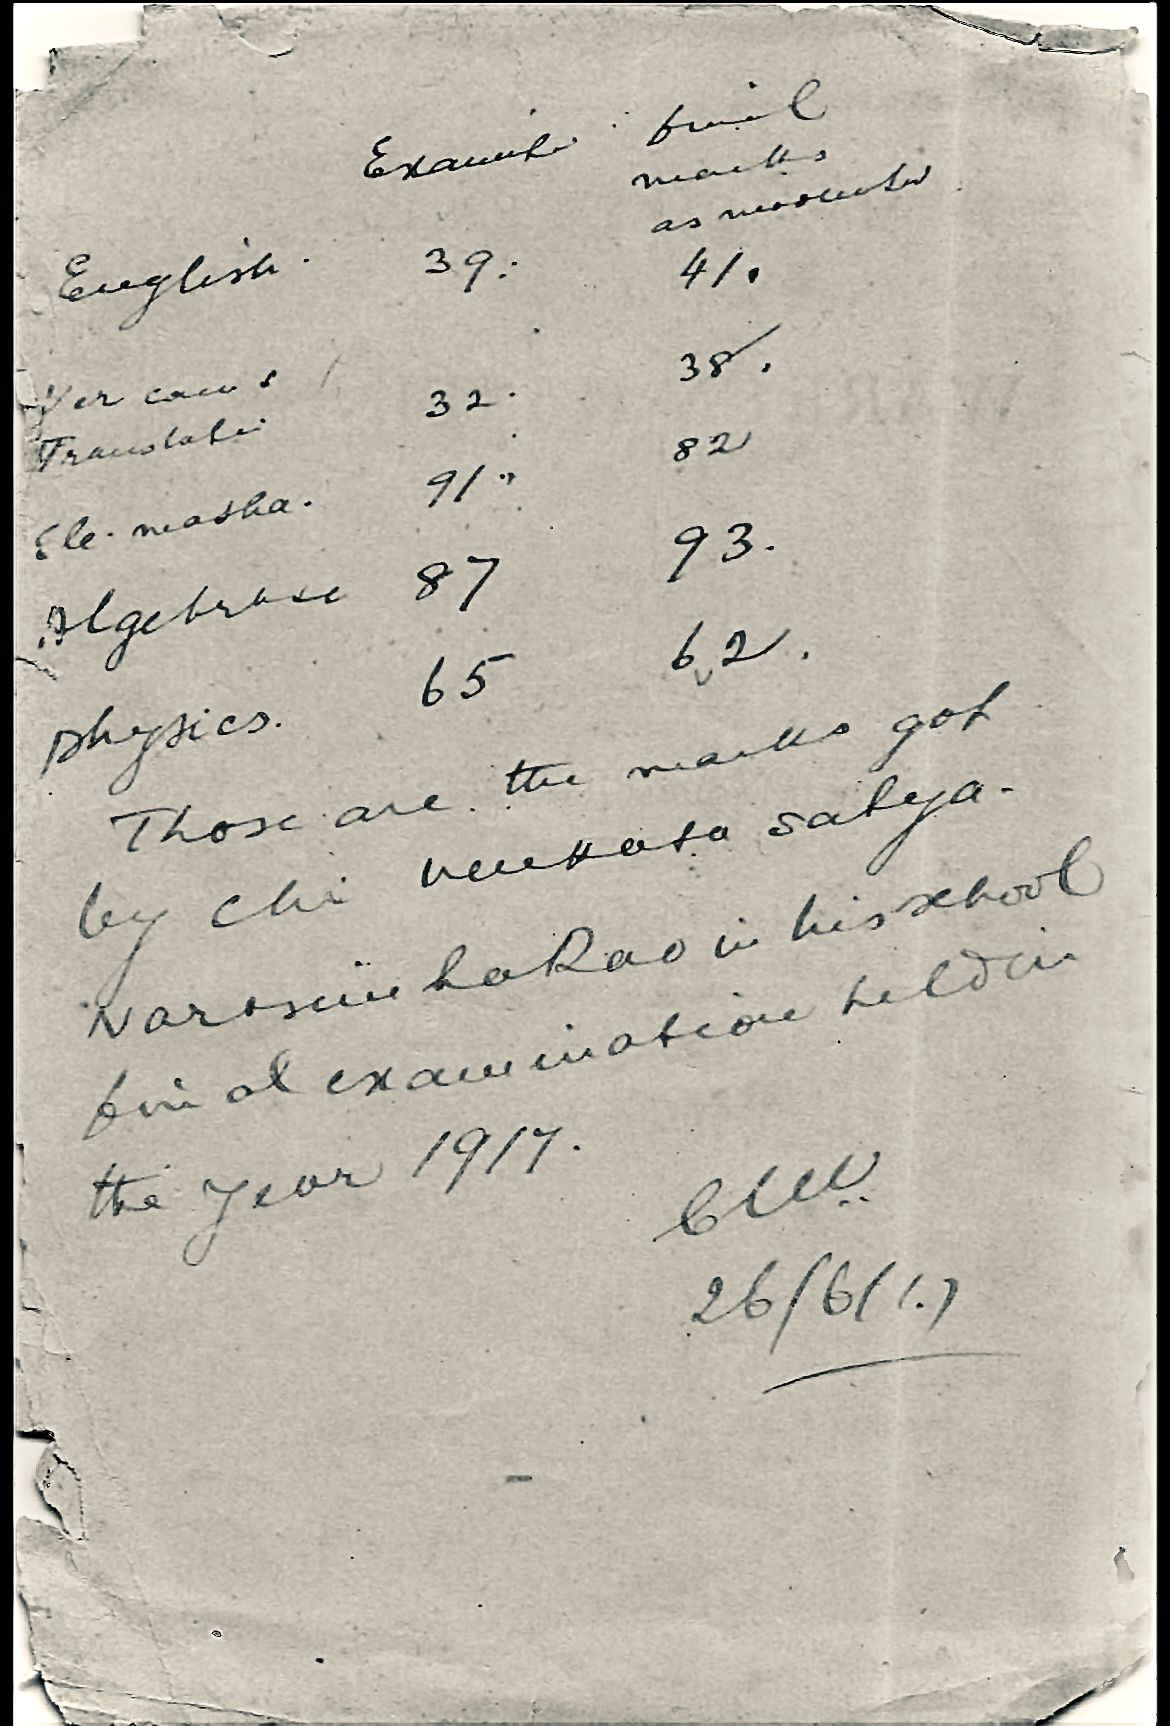 Final
marks
as moderated
English. 39. 41.
Vern. comp &
Translation 32. 38.
Ele. matha. 91. 82
Algebra &c 87 93.
Physics. 65 62.
Those are the marks got
by Chi Venkata Satya-
Narasimha Rao in his school
final examination held in
the year 1917.
26/6/17